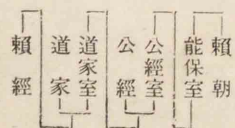 賴朝
能保室
公經室
公經
道家室
道家
賴經